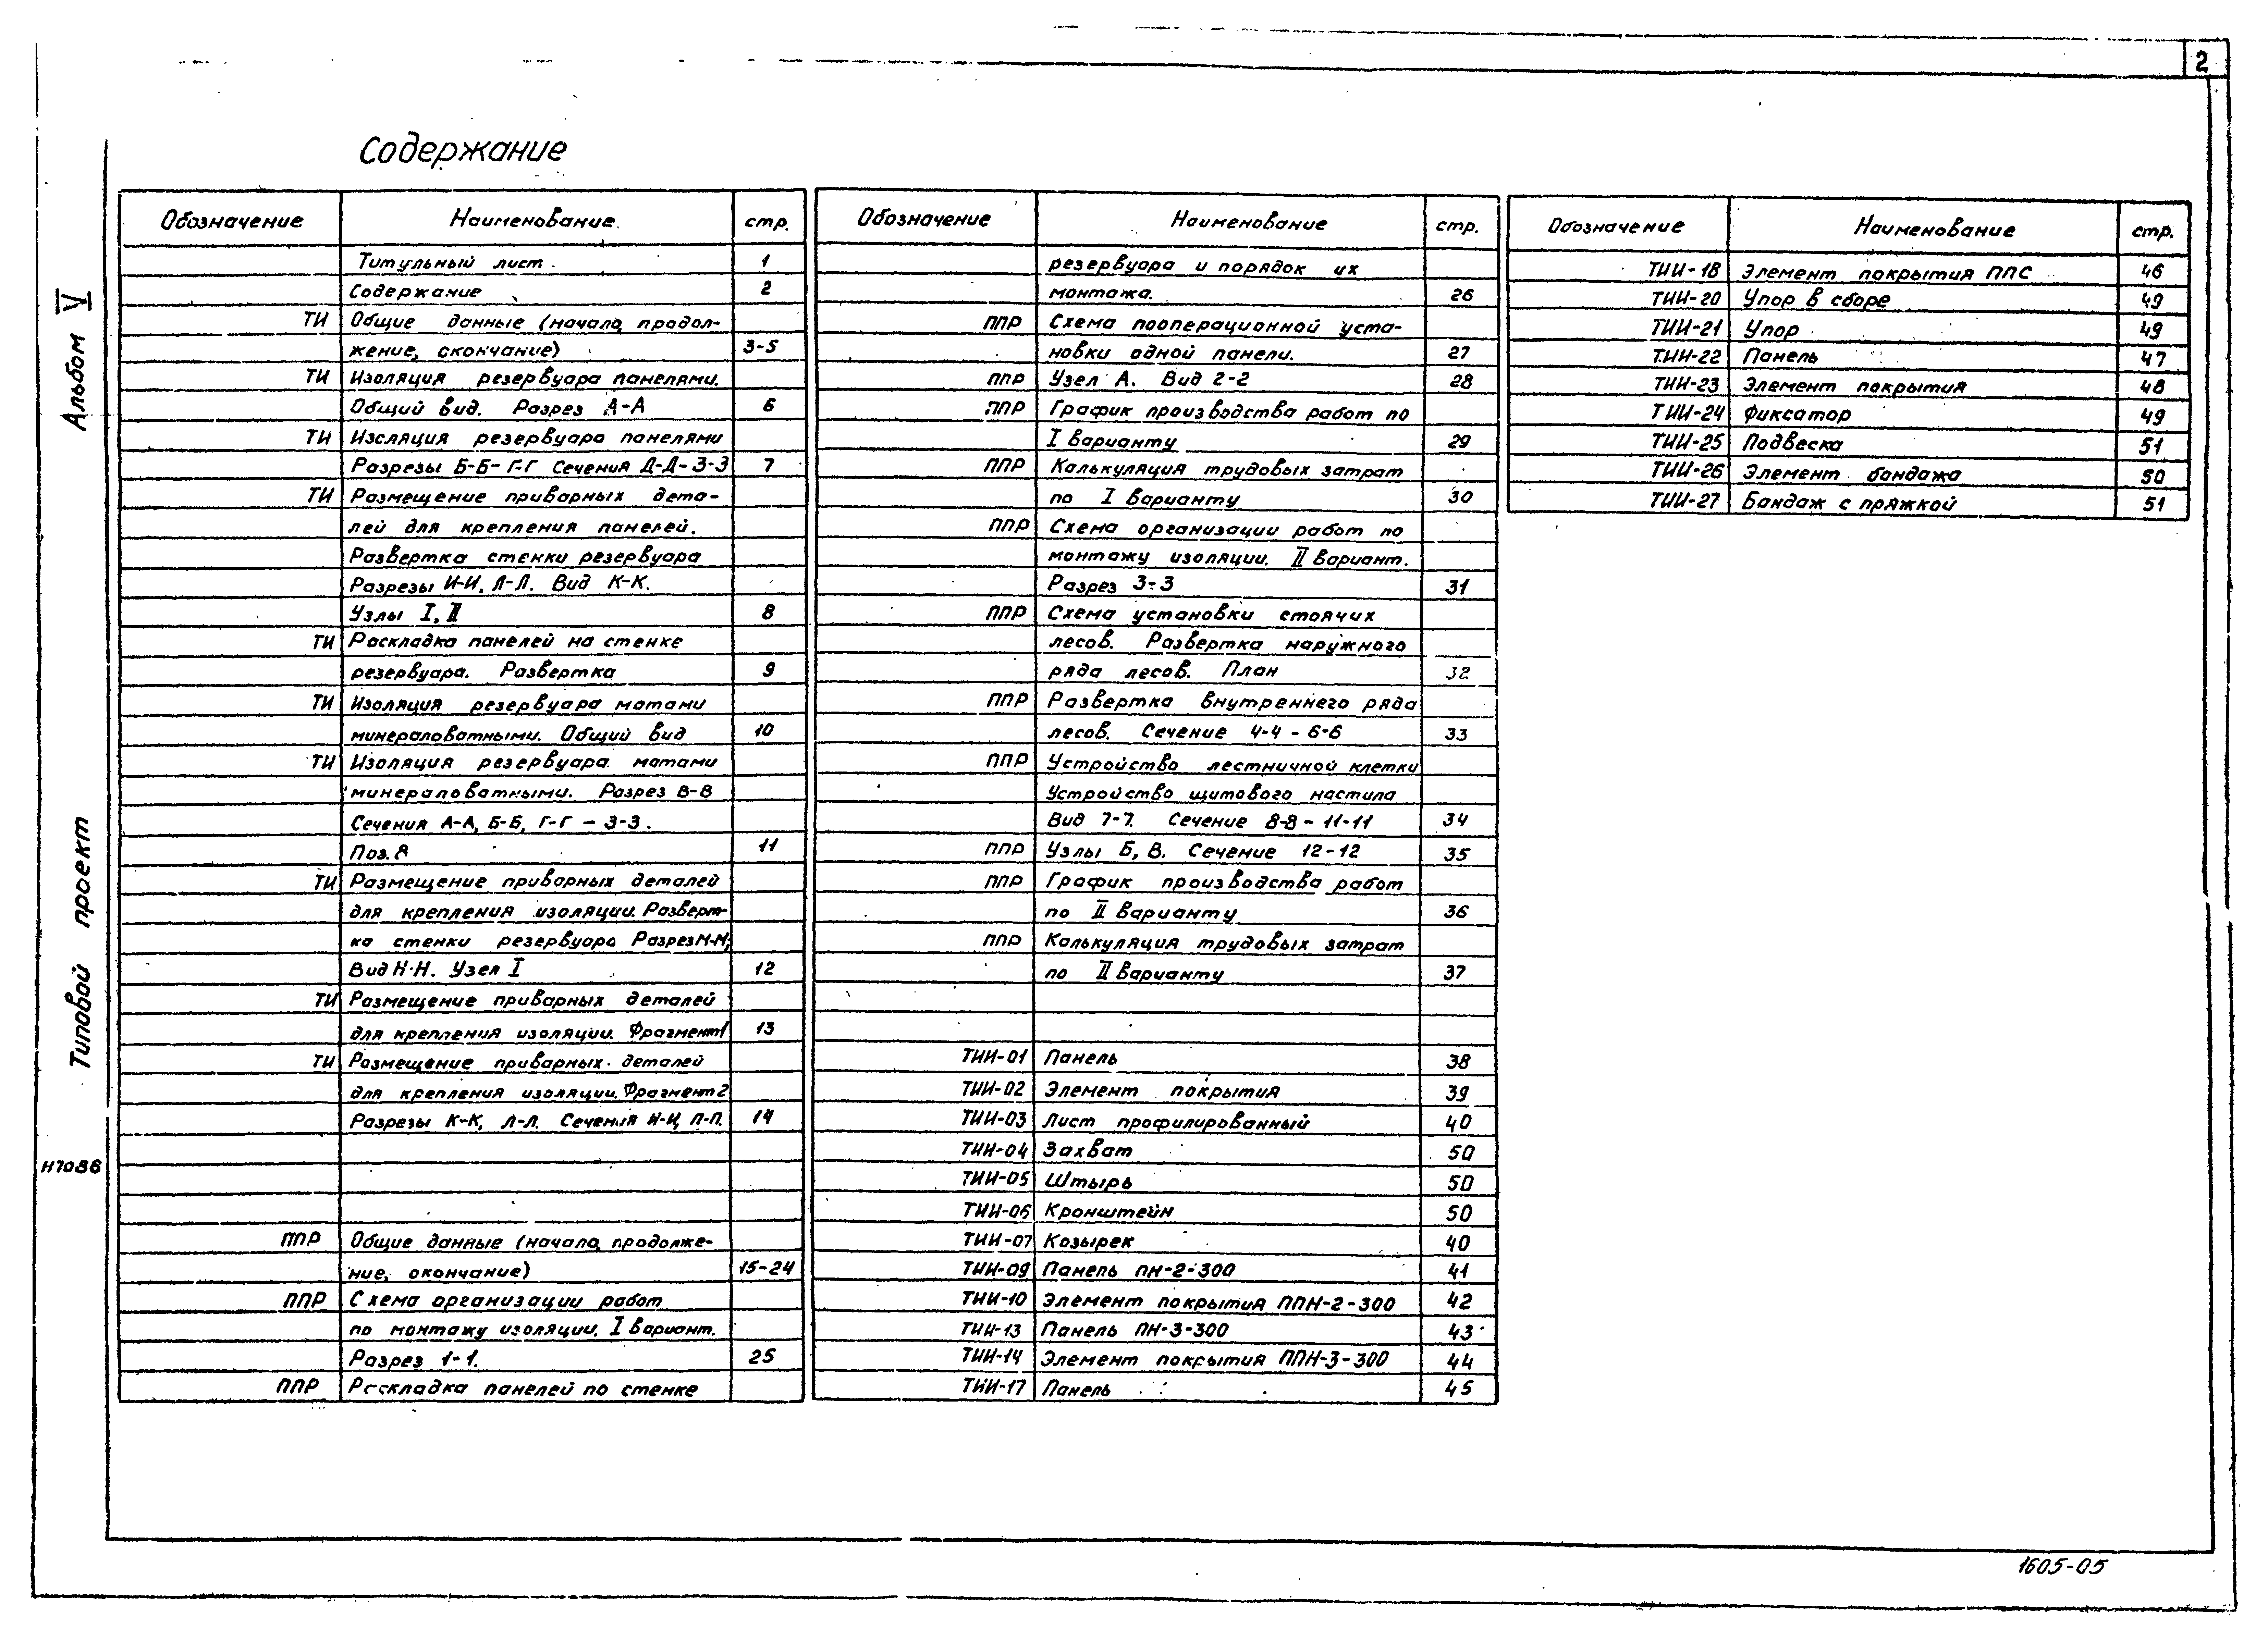 2
Содержание
Альбом V
Типовой проект
Н7086
Обозначение Наименование стр.
Титульный лист 1
Содержание 2
ТИ Общие данные (начало, продол-
жение, окончание) 3-5
ТИ Изоляция резервуара панелями.
Общий вид. Разрез А-А 6
ТИ Изоляция резервуара панелями
Разрезы Б-Б- Г-Г Сечения Д-Д- З-З 7
ТИ Размещение приварных дета-
лей для крепления панелей.
Развертка стенки резервуара
Разрезы И-И, Л-Л. Вид К-К.
Узлы I, II 8
ТИ Раскладка панелей на стенке
резервуара. Развертка 9
ТИ Изоляция резервуара матами
минераловатными. Общий вид 10
ТИ Изоляция резервуара матами
минераловатными. Разрез В-В
Сечения А-А, Б-Б, Г-Г – З-З.
Поз. 8 11
ТИ Размещение приварных деталей
для крепления изоляции. Разверт-
ка стенки резервуара Разрез М-М;
Вид Н-Н. Узел I 12
ТИ Размещение приварных деталей
для крепления изоляции. Фрагмент 1 13
ТИ Размещение приварных деталей
для крепления изоляции. Фрагмент 2
Разрезы К-К, Л-Л. Сечения И-И, П-П. 14
ППР Общие данные (начало, продолже-
ние, окончание) 15-24
ППР Схема организации работ
по монтажу изоляции. I вариант.
Разрез 1-1. 25
ППР Раскладка панелей по стенке
Обозначение Наименование стр.
резервуара и порядок их
монтажа. 26
ППР Схема пооперационной уста-
новки одной панели. 27
ППР Узел А. Вид 2-2 28
ППР График производства работ по
I варианту 29
ППР Калькуляция трудовых затрат
по I варианту 30
ППР Схема организации работ по
монтажу изоляции. II вариант.
Разрез 3-3 31
ППР Схема установки стоячих
лесов. Развертка наружного
ряда лесов. План 32
ППР Развертка внутреннего ряда
лесов. Сечение 4-4 - 6-6 33
ППР Устройство лестничной клетки
Устройство щитового настила
Вид 7-7. Сечение 8-8 - 11-11 34
ППР Узлы Б, В. Сечение 12-12 35
ППР График производства работ
по II варианту 36
ППР Калькуляция трудовых затрат
по II варианту 37
ТИИ-01 Панель 38
ТИИ-02 Элемент покрытия 39
ТИИ-03 Лист профилированный 40
ТИИ-04 Захват 50
ТИИ-05 Штырь 50
ТИИ-06 Кронштейн 50
ТИИ-07 Козырек 40
ТИИ-09 Панель ПН-2-300 41
ТИИ-10 Элемент покрытия ППН-2-300 42
ТИИ-13 Панель ПН-3-300 43
ТИИ-14 Элемент покрытия ППН-3-300 44
ТИИ-17 Панель 45
Обозначение Наименование стр.
ТИИ-18 Элемент покрытия ППС 46
ТИИ-20 Упор в сборе 49
ТИИ-21 Упор 49
ТИИ-22 Панель 47
ТИИ-23 Элемент покрытия 48
ТИИ-24 Фиксатор 49
ТИИ-25 Подвеска 51
ТИИ-26 Элемент бандажа 50
ТИИ-27 Бандаж с пряжкой 51
1605-05